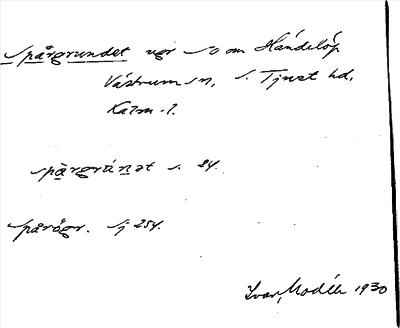 Spårgrundet vgr SO om Händelöp
Västrum sn, S. Tjust hd,
Kalm. l.
spårgrúnət s. 84.
Spårögr. Sj 254.
Ivar Modéer 1930